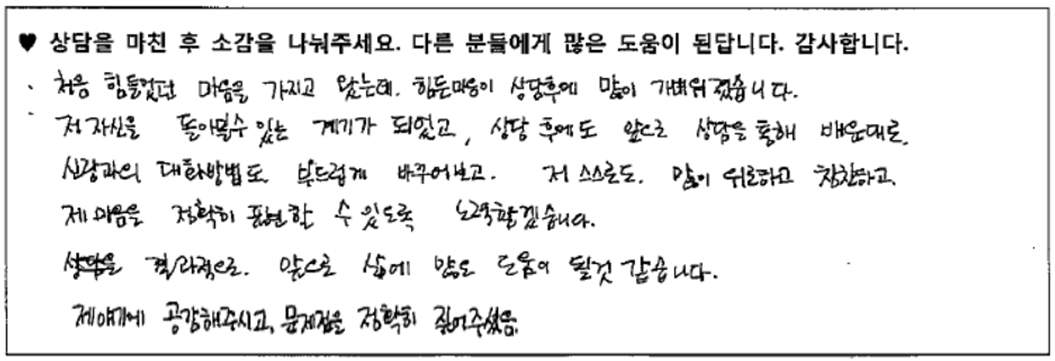 ♥ 상담을 마친 후 소감을 나눠주세요. 다른 분들에게 많은 도움이 된답니다. 감사합니다.
처음 힘들었던 마음을 가지고 왔는데. 힘든마음이 상담후에 많이 가벼워졌습니다.
저 자신을 돌아볼수 있는 계기가 되었고, 상담 후에도 앞으로 상담을 통해 배운대로.
신랑과의 대화방법도 부드럽게 바꾸어보고. 저 스스로도. 많이 위로하고 칭찬하고.
제 마음을 정확히 표현할 수 있도록 노력하겠습니다.
상담을 결과적으로. 앞으로 삶에 많은 도움이 될것 같습니다.
제얘기에 공감해주시고, 문제점을 정확히 짚어주셨음.